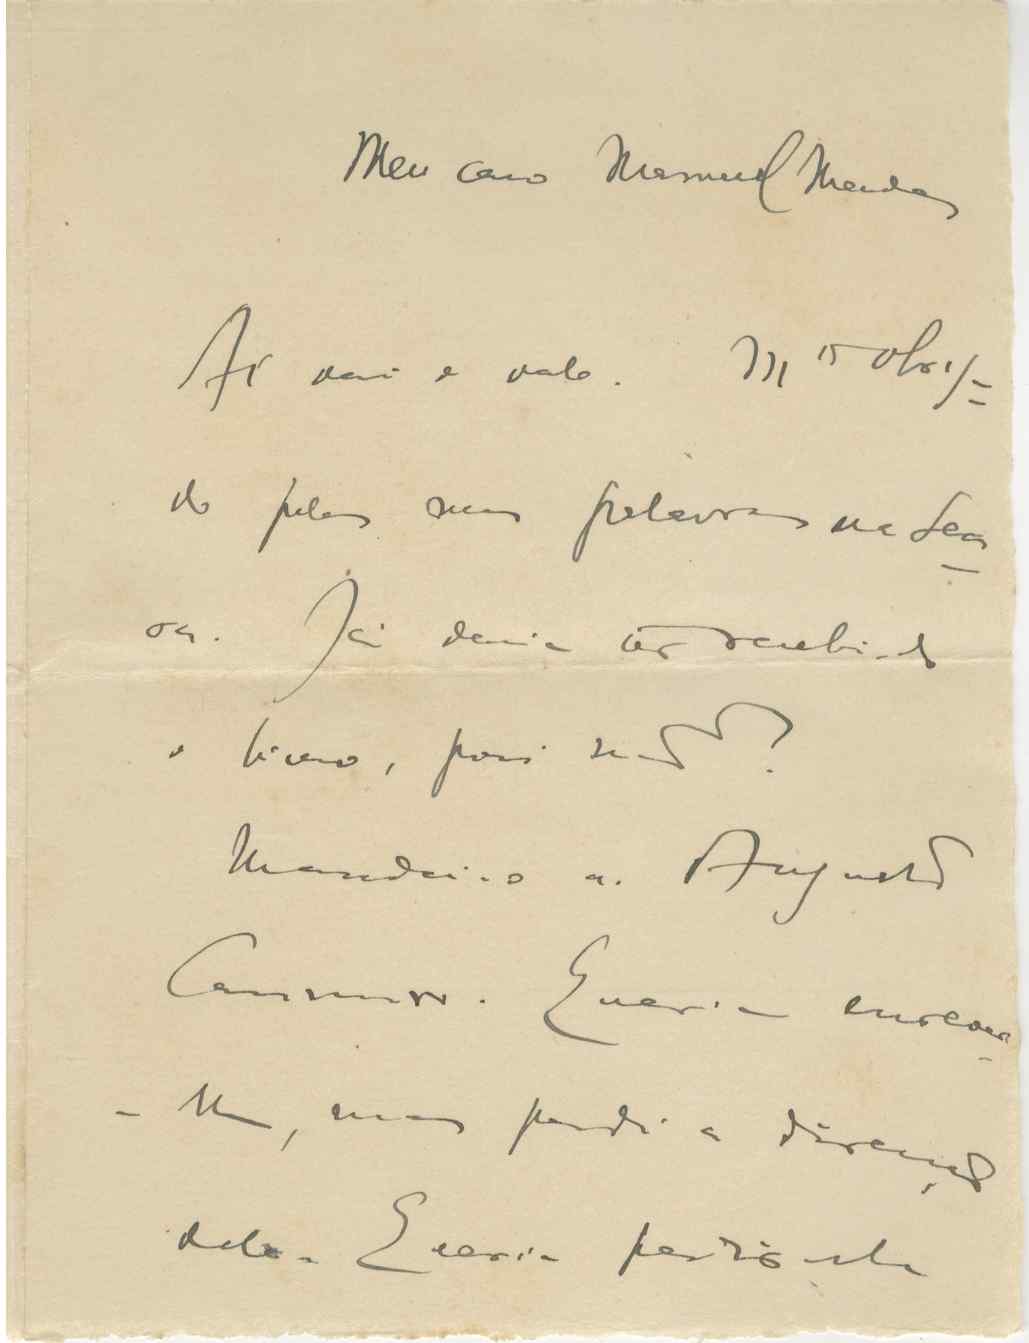 Meu caro Manuel Mendes
Aí vai o vale. Mto obriga=
do pelas suas palavras na Sea
ra. Já devia ter recebido
o livro, pois não?
Mandei-o a Augusto
Casimiro. Queria
-lhe, mas perdi a direcção
dele. Queria pedir-lhe